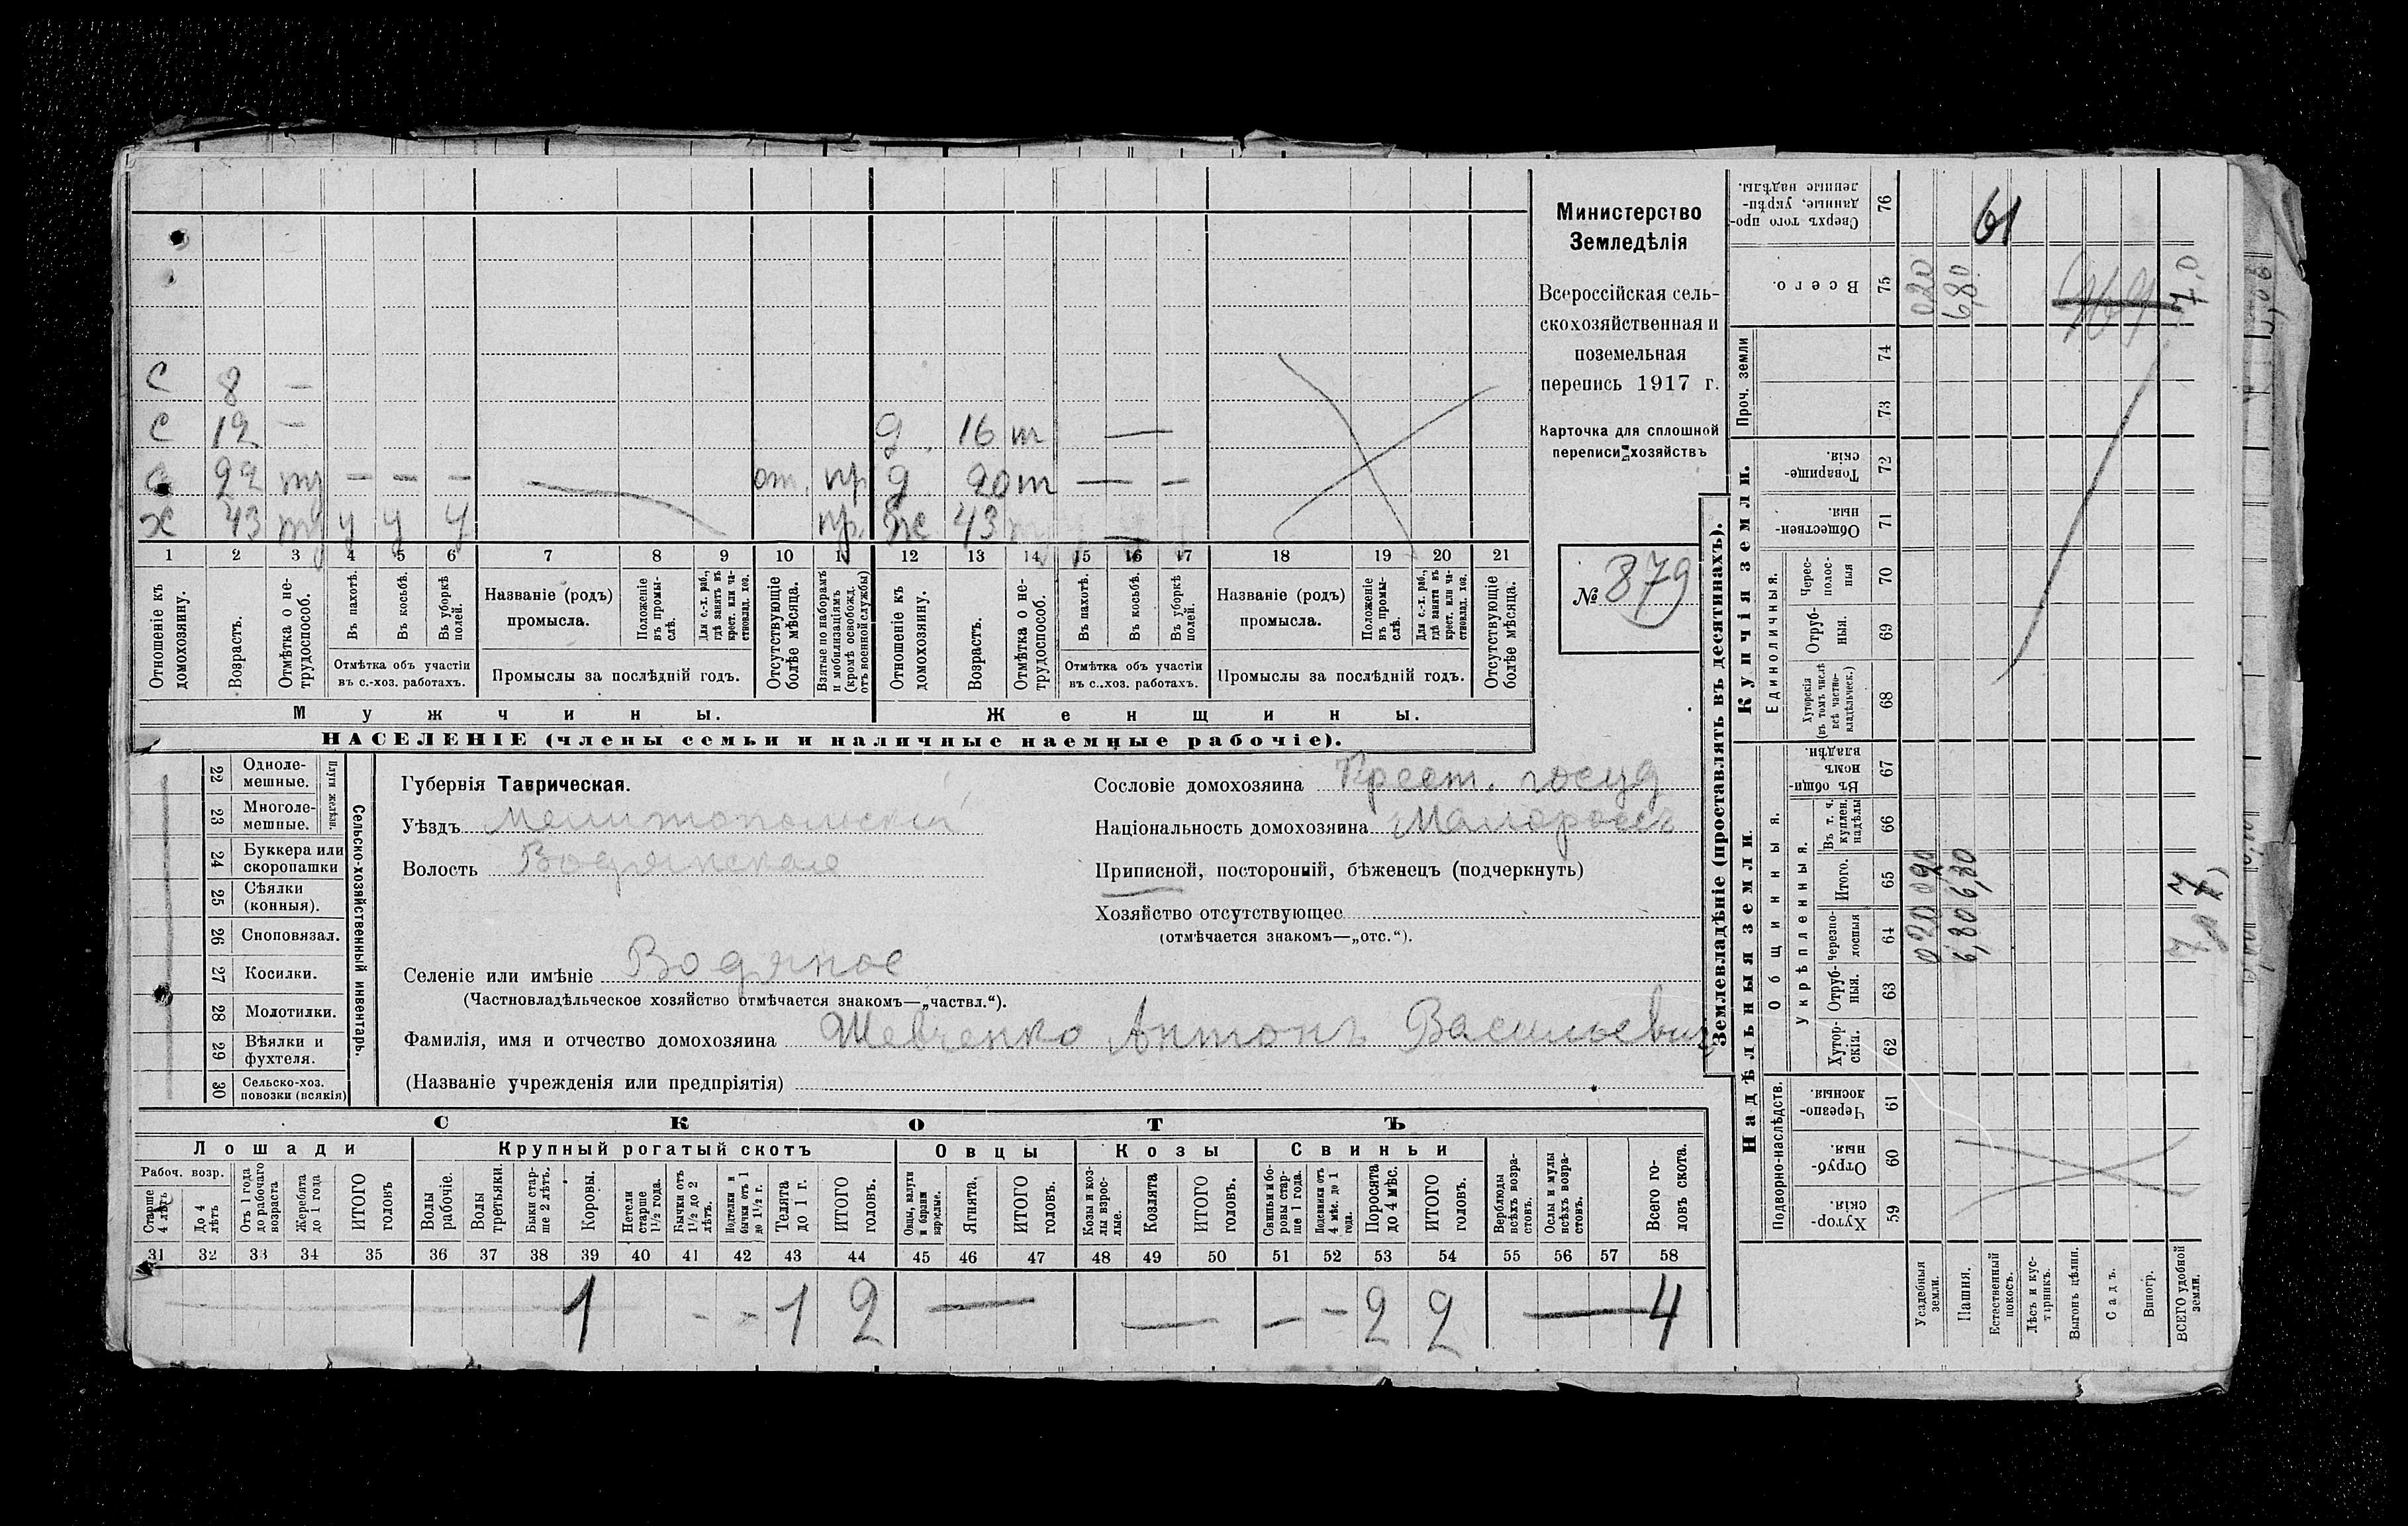 С 8 —
С 12 — д. 16 т —
С 22 тр — — — от. пр д 20 т — —
х 43 у у у пр. ж 43
1 2 3 4 5 6 7 8 9 10 11 12 13 14 15 16 17 18 19 20 21
Отношеніе къ домохозяину.
Возрастъ.
Отмѣтка о не-
трудоспособ.
Въ пахотѣ.
Въ косьбѣ.
Въ уборкѣ полей.
Отмѣтка объ участіи
въ с.-хоз. работахъ.
Названіе (родъ)
промысла.
Положеніе въ промы-
слѣ.
Для с.-х. раб., гдѣ занятъ въ крест. или ча-
стновлад. хоз.
Промыслы за послѣдній годъ.
Отсутствующіе болѣе мѣсяца.
Взятые по наборамъ и мобилизаціямъ (кромѣ освобожд. отъ военной службы)
Отношеніе къ домохозяину.
Возрастъ.
Отмѣтка о не-
трудоспособ.
Въ пахотѣ.
Въ косьбѣ.
Въ уборкѣ полей.
Отмѣтка объ участіи
въ с.-хоз. работахъ.
Названіе (родъ)
промысла.
Положеніе въ промы-
слѣ.
Для с.-х. раб., гдѣ занята въ крест. или ча-
стновлад. хоз.
Промыслы за послѣдній годъ.
Отсутствующіе болѣе мѣсяца.
Мужчины.
Женщины.
НАСЕЛЕНІЕ (члены семьи и наличные наемные рабочіе).
Министерство
Земледѣлія
Всероссійская сель-
скохозяйственная и
поземельная
перепись 1917 г.
Карточка для сплошной
переписи хозяйствъ
№ 879
22 Одноле-
мешные.
23 Многоле-
мешные.
Плуги желѣзн.
24 Буккера или
скоропашки
25 Сѣялки
(конныя).
26 Сноповязал.
27 Косилки.
28 Молотилки.
29 Вѣялки и
фухтеля.
30 Сельско-хоз.
повозки (всякія)
Сельско-хозяйственный инвентарь.
Губернія Таврическая.
Уѣздъ Мелитопольскій
Волость Водянская
Селеніе или имѣніе Водяное
(Частновладѣльческое хозяйство отмѣчается знакомъ—„частвл.“).
Фамилія, имя и отчество домохозяина Шевченко Антонъ Васильевич
(Названіе учрежденія или предпріятія)
Сословіе домохозяина Крест. госуд
Національность домохозяина Малороссъ
Приписной, посторонній, бѣженецъ (подчеркнуть)
Хозяйство отсутствующее
(отмѣчается знакомъ—„отс.“).
СКОТЪ
Лошади
Крупный рогатый скотъ
Овцы
Козы
Свиньи
Рабоч. возр.
Старше 4 лѣтъ
До 4 лѣтъ
Отъ 1 года до рабочаго возраста
Жеребята до 1 года
ИТОГО головъ
Волы рабочіе.
Волы третьяки.
Быки стар-
ше 2 лѣтъ.
Коровы.
Нетели старше 1½ года.
Бычки отъ 1½ до 2 лѣтъ.
Подтелки и бычки отъ 1 до 1½ г.
Телята до 1 г.
ИТОГО головъ.
Овцы, валухи и бараны взрослые.
Ягнята.
ИТОГО головъ.
Козы и коз-
лы взрос-
лые.
Козлята
ИТОГО головъ.
Свиньи и бо-
ровы стар-
ше 1 года.
Подсвинки отъ 4 мѣс. до 1 года.
Поросята до 4 мѣс.
ИТОГО головъ.
Верблюды всѣхъ возра-
стовъ.
Ослы и мулы всѣхъ возра-
стовъ.
Всего го-
ловъ скота.
31 32 33 34 35 36 37 38 39 40 41 42 43 44 45 46 47 48 49 50 51 52 53 54 55 56 57 58
1 - - 1 2 — — — - 2 2 — 4
Землевладѣніе (проставлять въ десятинахъ).
Купчія земли.
Надѣльныя земли.
Сверхъ того про-
данные, укрѣп-
ленные надѣлы. 76 61
Всего. 75 0,20 6,80 7,0
Проч. земли 74
73
Товарище-
скія. 72
Обществен-
ныя. 71
Единоличныя.
Черес-
полос-
ныя 70
Отруб-
ныя. 69
Хуторскія
(въ томъ числѣ
всѣ частно-
владѣльческ.) 68
Общинныя.
Въ общин-
номъ
владѣн. 67
Укрѣпленныя.
Въ т. ч.
куплен.
надѣлы 66
Итого. 65 0,20 6,80 7
Черезпо-
лосныя 64 0,20 6,80
Отруб-
ныя. 63
Хутор-
скія. 62
Подворно-наслѣдств.
Черезпо-
лосныя. 61
Отруб-
ныя. 60
Хутор-
скія. 59
Усадебныя земли.
Пашня.
Естественный покосъ.
Лѣсъ и кус-
тарникъ.
Выгонъ цѣлин.
Садъ.
Виногр.
ВСЕГО удобной земли.